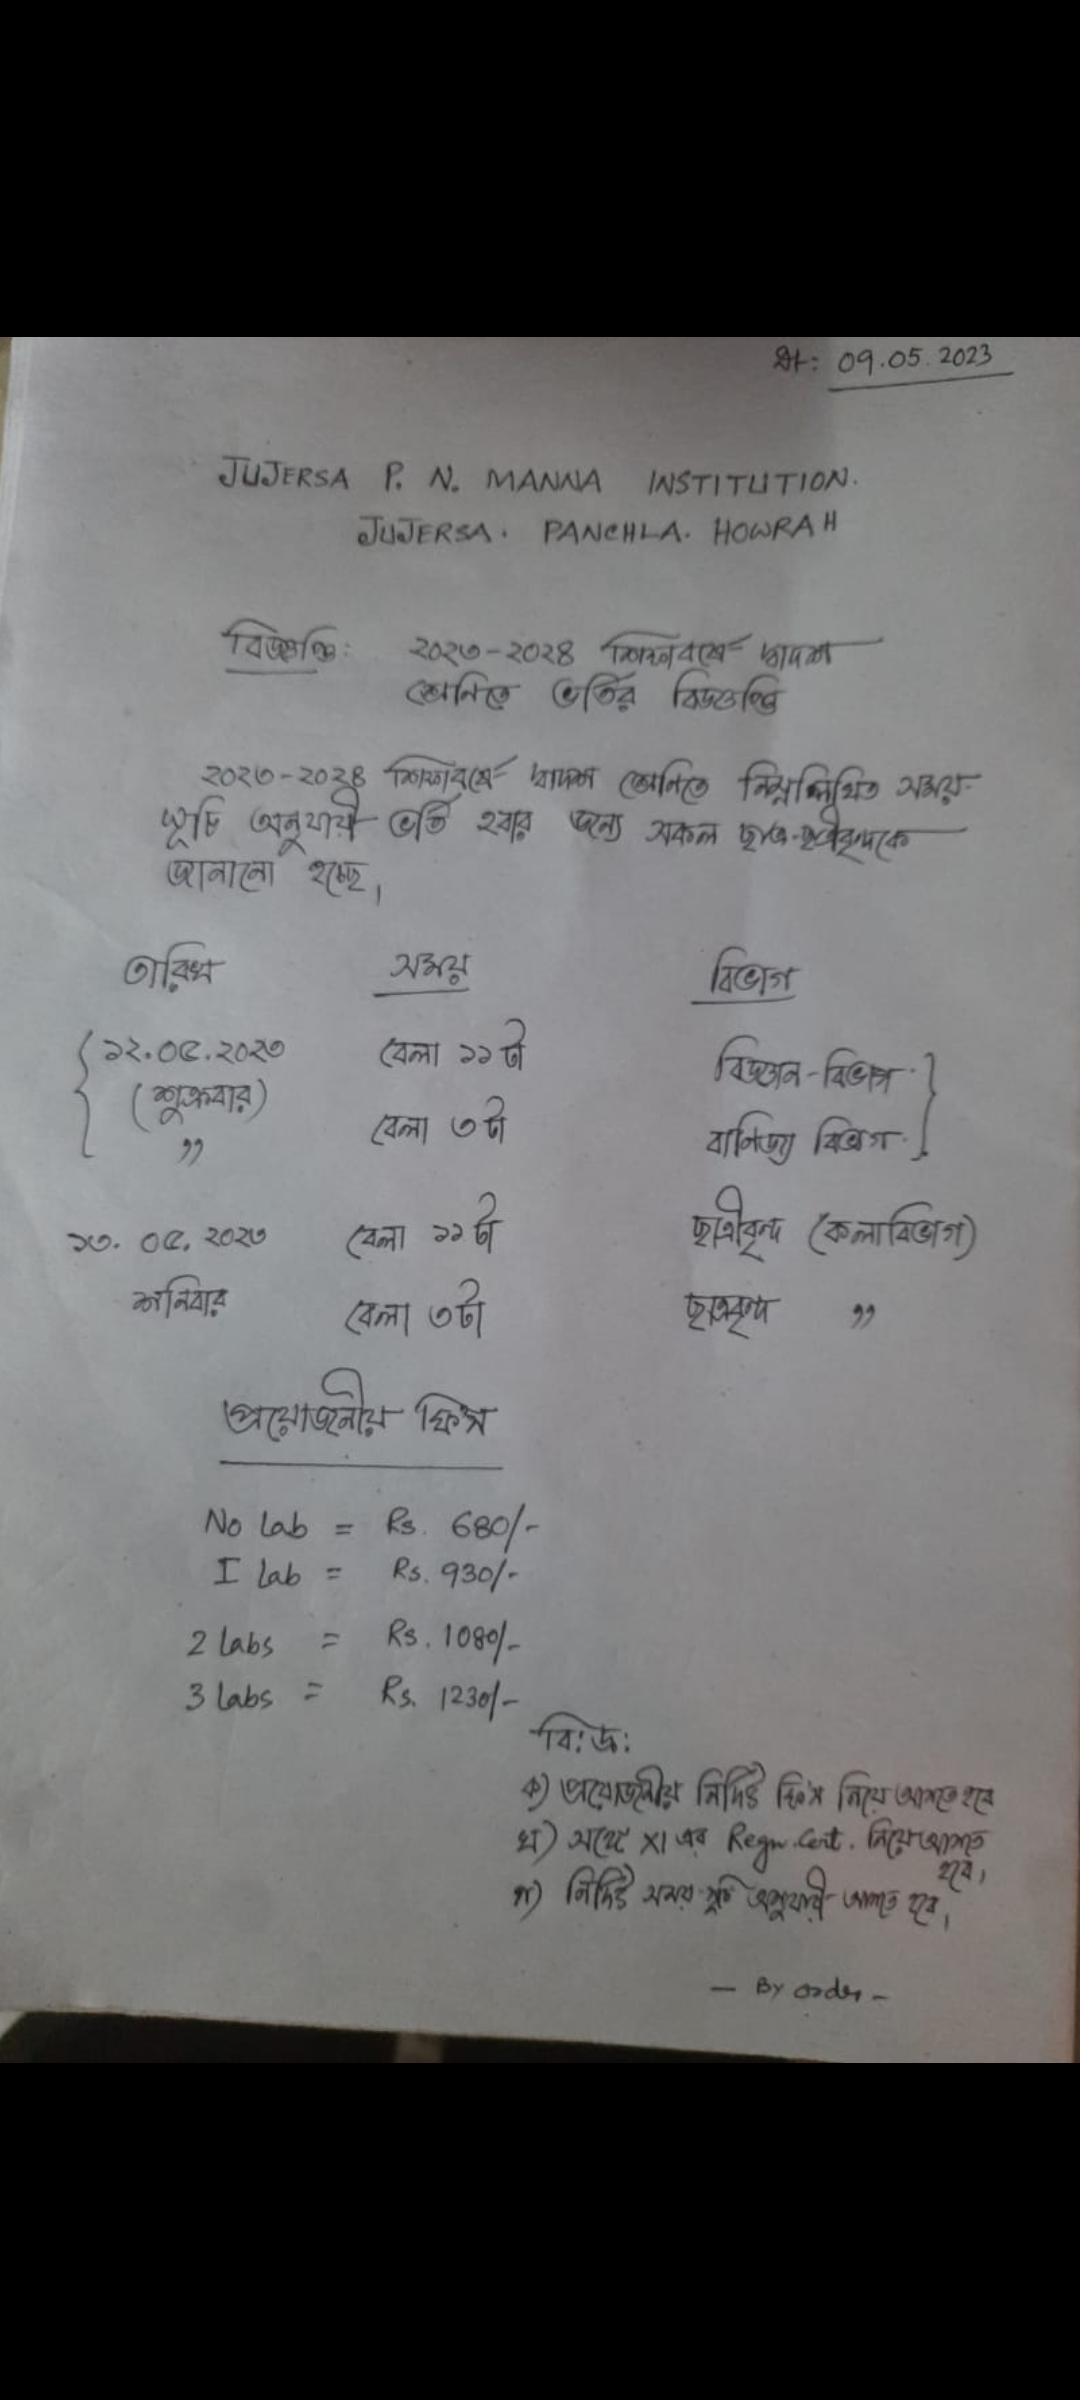 Dt: 09.05.2023
JUJERSA P. N. MANNA INSTITUTION.
JUJERSA. PANCHLA. HOWRAH
বিজ্ঞপ্তি: ২০২৩-২০২৪ শিক্ষাবর্ষে দ্বাদশ
শ্রেনিতে ভর্তির বিজ্ঞপ্তি
২০২৩-২০২৪ শিক্ষাবর্ষে দ্বাদশ শ্রেনিতে নিম্নলিখিত সময়-
সূচি অনুযায়ী ভর্তি হবার জন্য সকল ছাত্র-ছাত্রীবৃন্দকে
জানানো হচ্ছে।
তারিখ সময় বিভাগ
১২.০৫.২০২৩ বেলা ১১টা বিজ্ঞান-বিভাগ
(শুক্রবার)
,, বেলা ৩টা বানিজ্য বিভাগ
১৩.০৫.২০২৩ বেলা ১১টা ছাত্রীবৃন্দ (কলাবিভাগ)
শনিবার বেলা ৩টা ছাত্রবৃন্দ ,,
প্রয়োজনীয় ফিস
No Lab = Rs. 680/-
I Lab = Rs. 930/-
2 Labs = Rs. 1080/-
3 Labs = Rs. 1230/-
বি:দ্র:
ক) প্রয়োজনীয় নির্দিষ্ট ফিস নিয়ে আসতে হবে
খ) সঙ্গে XI এর Regn. Cert. নিয়ে আসতে
হবে।
গ) নির্দিষ্ট সময় সূচি অনুযায়ী আসতে হবে।
— By order –